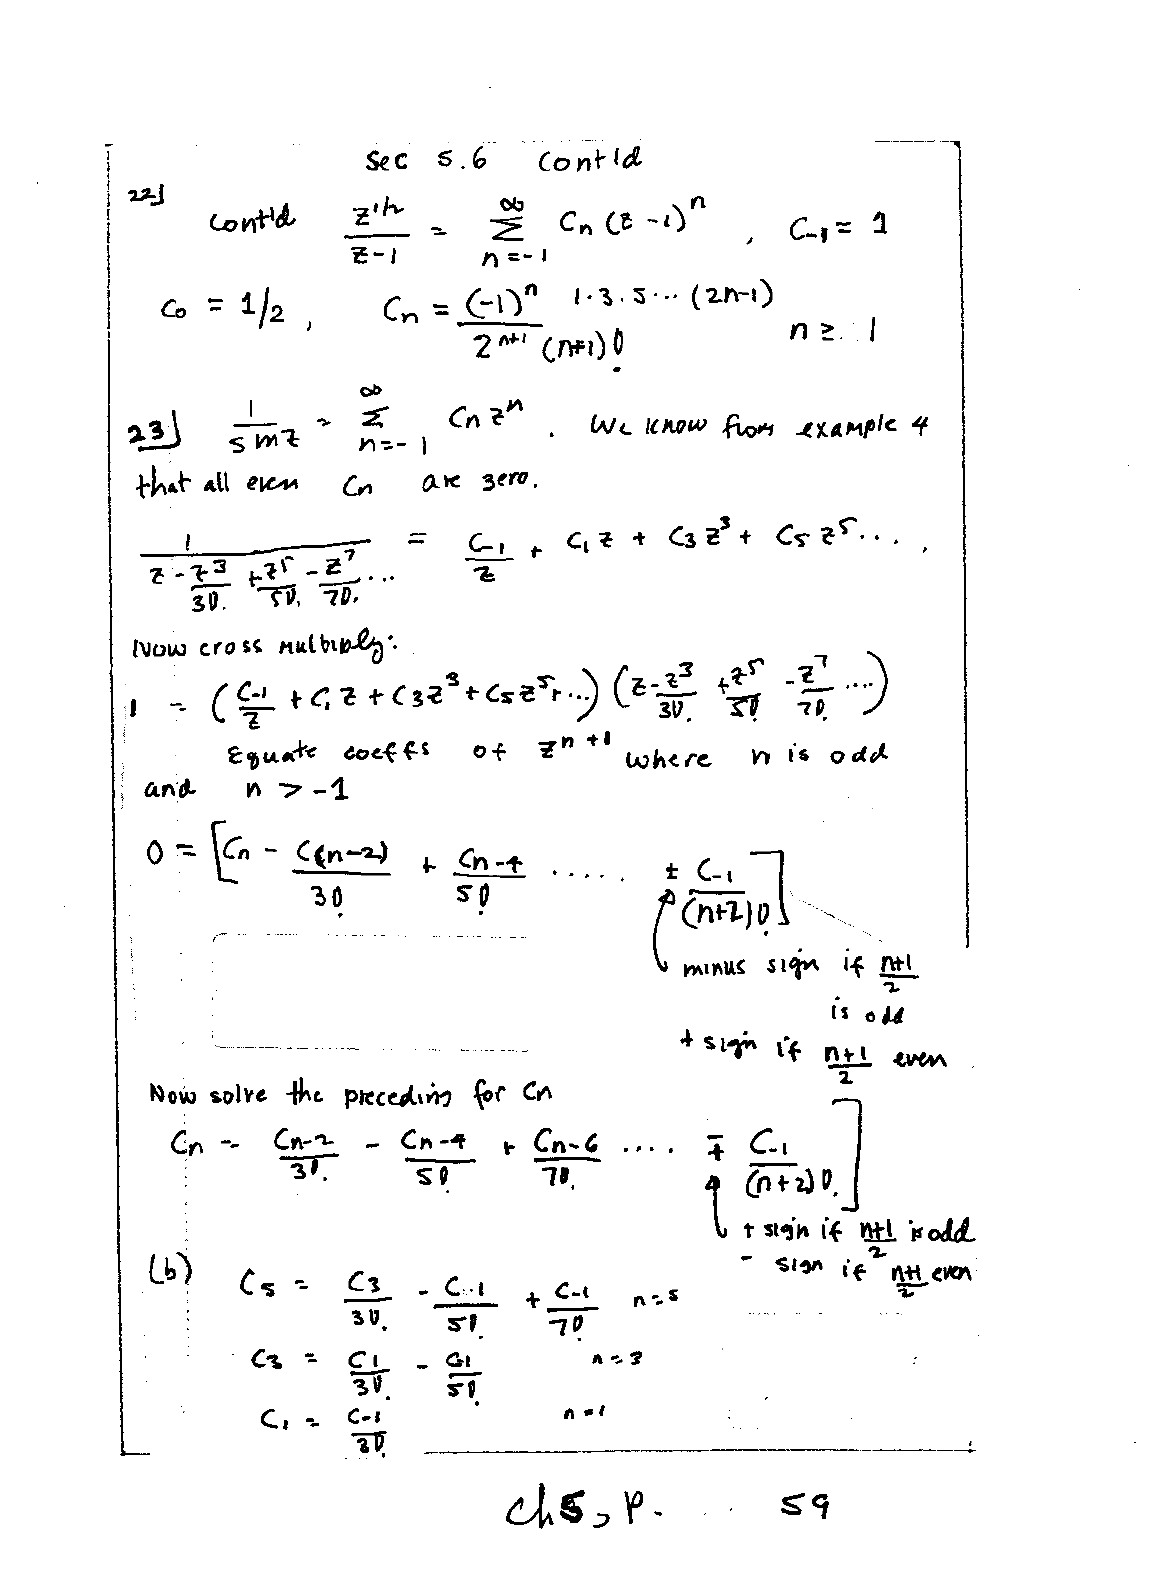 Sec 5.6 Cont'd
22)
Cont'd z^{1/2}/(z-1) = Σ_{n=-1}^{∞} C_n (z-1)^n , C_{-1} = 1
C_0 = 1/2 , C_n = (-1)^n/2^{n+1} 1·3·5···(2n-1)/(n+1)! n ≥ 1
23) 1/sin z = Σ_{n=-1}^{∞} C_n z^n . We know from example 4
that all even C_n are zero.
1/(z - z^3/3! + z^5/5! - z^7/7! ...) = C_{-1}/z + C_1 z + C_3 z^3 + C_5 z^5 ... ,
Now cross multiply:
1 = (C_{-1}/z + C_1 z + C_3 z^3 + C_5 z^5 + ...) (z - z^3/3! + z^5/5! - z^7/7! ...)
Equate coeffs of z^{n+1} where n is odd
and n > -1
0 = [C_n - C_{(n-2)}/3! + C_{n-4}/5! ..... ± C_{-1}/(n+2)!]
minus sign if (n+1)/2
is odd
+ sign if (n+1)/2 even
Now solve the preceding for C_n
C_n = C_{n-2}/3! - C_{n-4}/5! + C_{n-6}/7! .... ∓ C_{-1}/(n+2)! ]
+ sign if (n+1)/2 is odd
- sign if (n+1)/2 even
(b) C_5 = C_3/3! - C_{-1}/5! + C_{-1}/7! n=5
C_3 = C_1/3! - C_{-1}/5! n=3
C_1 = C_{-1}/3! n=1
Ch5, P. 59